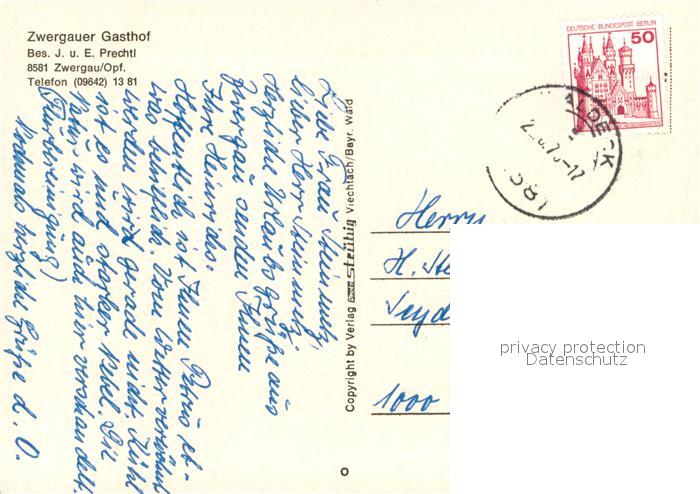 Zwergauer Gasthof
Bes. J. u. E. Prechtl
8581 Zwergau/Opf.
Telefon (09642) 13 81
DEUTSCHE BUNDESPOST BERLIN
50
ALDECK
Liebe Frau Steinmetz,
lieber Herr Steinmetz,
herzliche Urlaubsgrüße aus
Zwergau senden Ihnen
Ihre Heinrichs.
Hoffentlich ist Ihnen Petrus et-
was behilflich. Vom Wetter verwöhnt
werden wir gerade nicht. Kühl
ist es und starker Nebel. Die
Natur wird auch hier verschandelt.
(Flurbereinigung)
Nochmals herzliche Grüße d. O.
Copyright by Verlag Strübig Viechtach/Bayr. Wald
Herrn
H. Ste
Seyd
1000
privacy protection
Datenschutz